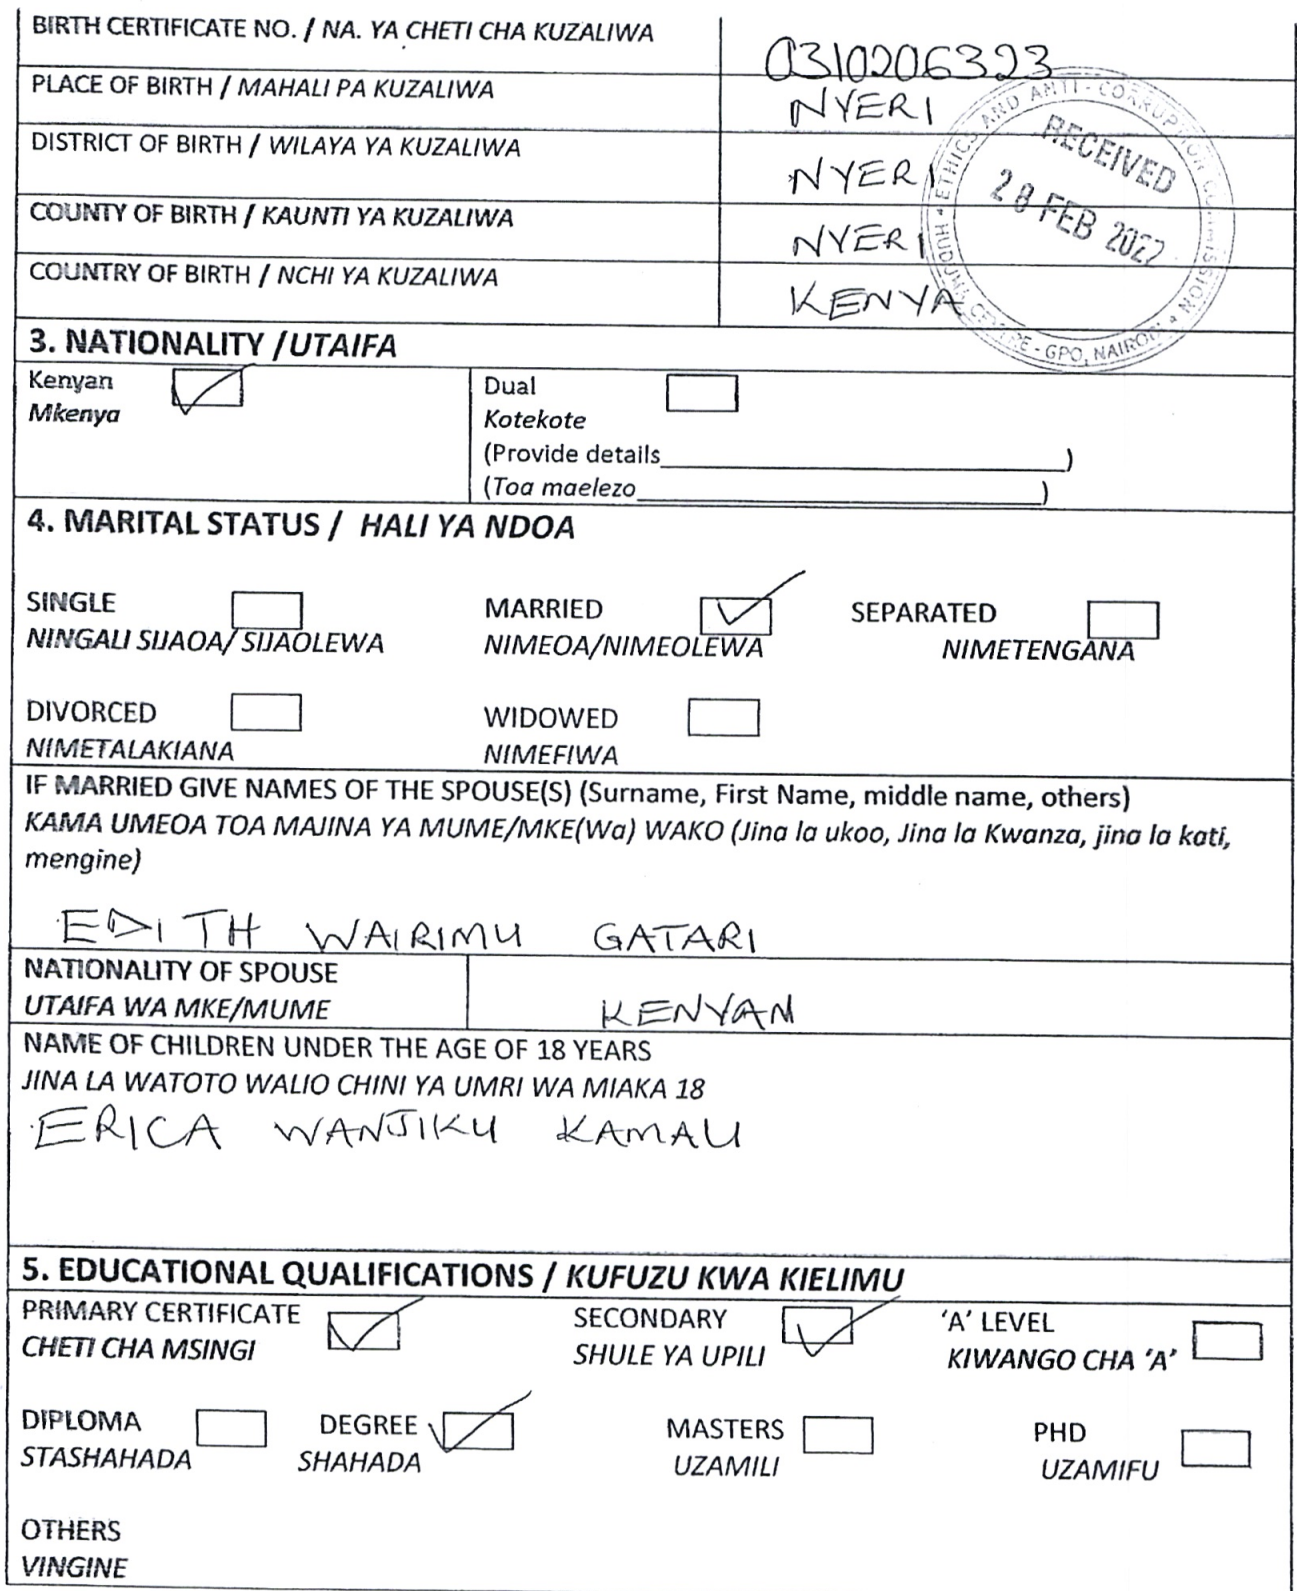 BIRTH CERTIFICATE NO. / NA. YA CHETI CHA KUZALIWA 0310206323
PLACE OF BIRTH / MAHALI PA KUZALIWA NYERI
DISTRICT OF BIRTH / WILAYA YA KUZALIWA NYERI
COUNTY OF BIRTH / KAUNTI YA KUZALIWA NYERI
COUNTRY OF BIRTH / NCHI YA KUZALIWA KENYA
ETHICS AND ANTI-CORRUPTION COMMISSION
RECEIVED
28 FEB 2022
HUDUMA CENTRE - GPO, NAIROBI
3. NATIONALITY / UTAIFA
Kenyan Dual
Mkenya Kotekote
(Provide details )
(Toa maelezo )
4. MARITAL STATUS / HALI YA NDOA
SINGLE MARRIED SEPARATED
NINGALI SIJAOA/ SIJAOLEWA NIMEOA/NIMEOLEWA NIMETENGANA
DIVORCED WIDOWED
NIMETALAKIANA NIMEFIWA
IF MARRIED GIVE NAMES OF THE SPOUSE(S) (Surname, First Name, middle name, others)
KAMA UMEOA TOA MAJINA YA MUME/MKE(Wa) WAKO (Jina la ukoo, Jina la Kwanza, jina la kati,
mengine)
EDITH WAIRIMU GATARI
NATIONALITY OF SPOUSE
UTAIFA WA MKE/MUME KENYAN
NAME OF CHILDREN UNDER THE AGE OF 18 YEARS
JINA LA WATOTO WALIO CHINI YA UMRI WA MIAKA 18
ERICA WANJIKU KAMAU
5. EDUCATIONAL QUALIFICATIONS / KUFUZU KWA KIELIMU
PRIMARY CERTIFICATE SECONDARY 'A' LEVEL
CHETI CHA MSINGI SHULE YA UPILI KIWANGO CHA 'A'
DIPLOMA DEGREE MASTERS PHD
STASHAHADA SHAHADA UZAMILI UZAMIFU
OTHERS
VINGINE